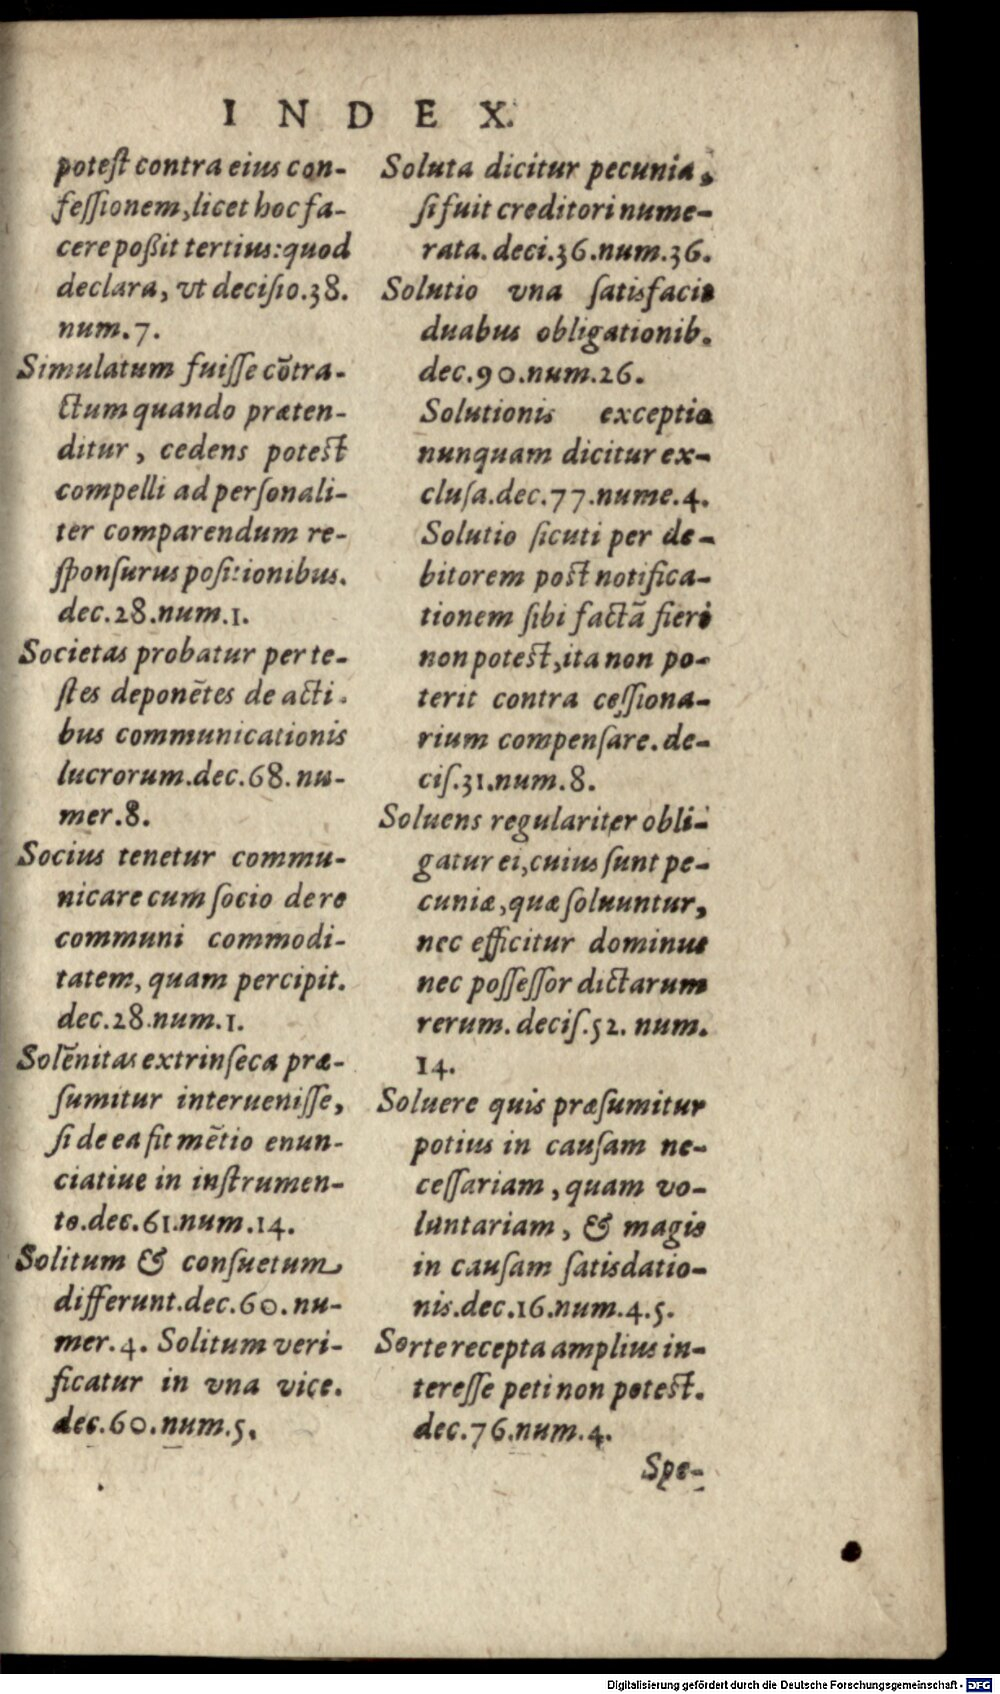 INDEX.
potest contra eius con-
fessionem, licet hoc fa-
cere poßit tertius: quod
declara, vt decisio.38.
num.7.
Simulatum fuisse cōtra-
ctum quando præten-
ditur, cedens potest
compelli ad personali-
ter comparendum re-
sponsurus positionibus.
dec.28.num.1.
Societas probatur per te-
stes deponētes de acti-
bus communicationis
lucrorum.dec.68.nu-
mer.8.
Socius tenetur commu-
nicare cum socio de re
communi commodi-
tatem, quam percipit.
dec.28.num.1.
Solēnitas extrinseca præ-
sumitur interuenisse,
si de ea sit mētio enun-
ciatiue in instrumen-
to.dec.61.num.14.
Solitum & consuetum
differunt.dec.60.nu-
mer.4. Solitum veri-
ficatur in vna vice.
dec.60.num.5.
Soluta dicitur pecunia,
si fuit creditori nume-
rata. deci.36.num.36.
Solutio vna satisfacit
duabus obligationib.
dec.90.num.26.
Solutionis exceptio
nunquam dicitur ex-
clusa.dec.77.nume.4.
Solutio sicuti per de-
bitorem post notifica-
tionem sibi factā fieri
non potest, ita non po-
terit contra cessiona-
rium compensare. de-
cis.31.num.8.
Soluens regulariter obli-
gatur ei, cuius sunt pe-
cuniæ, quæ soluuntur,
nec efficitur dominus
nec possessor dictarum
rerum. decis.52. num.
14.
Soluere quis præsumitur
potius in causam ne-
cessariam, quam vo-
luntariam, & magis
in causam satisdatio-
nis.dec.16.num.4.5.
Sorte recepta amplius in-
teresse peti non potest.
dec.76.num.4.
Spe-
Digitalisierung gefördert durch die Deutsche Forschungsgemeinschaft - DFG